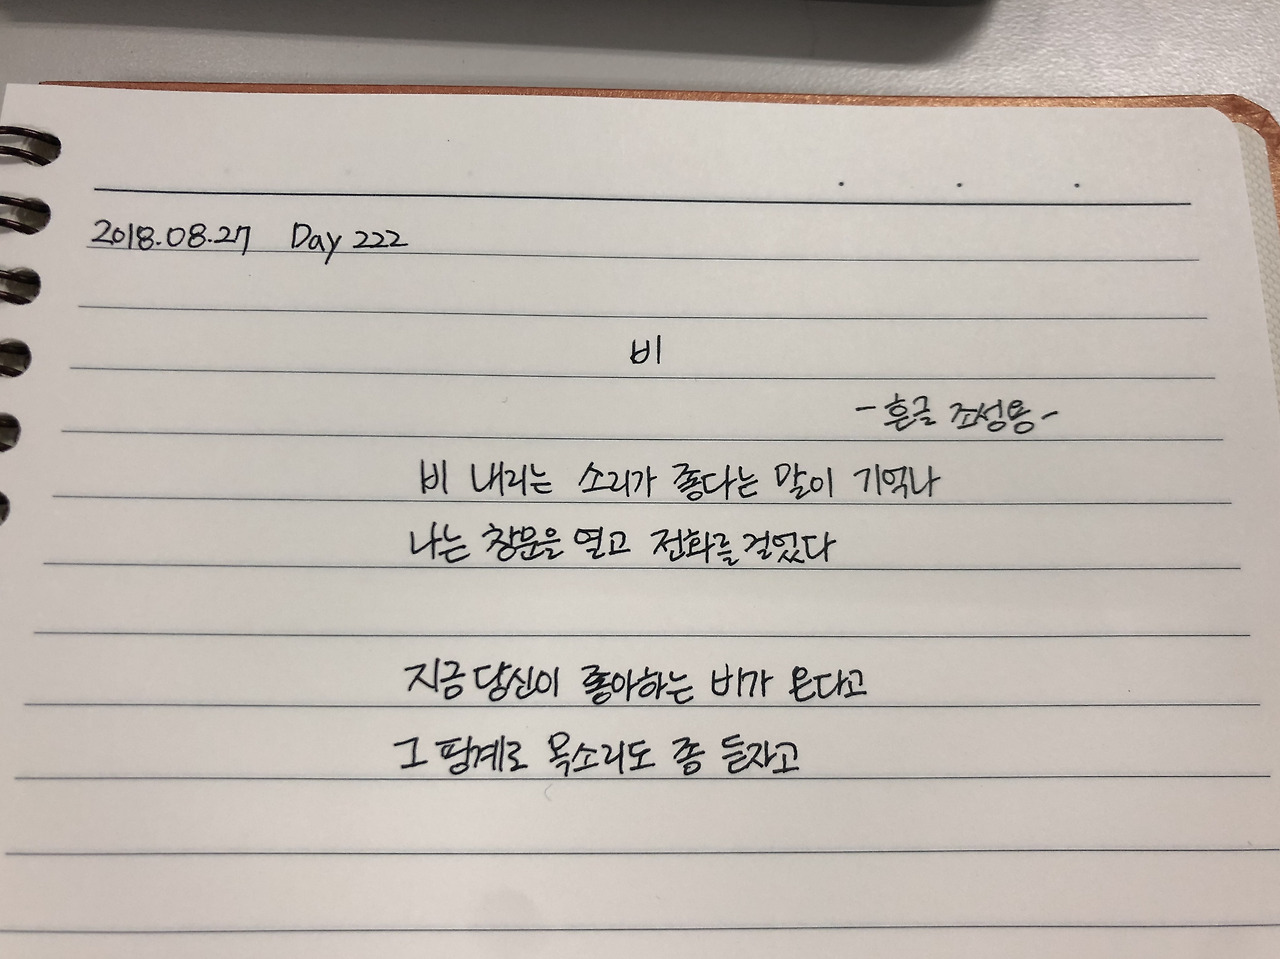 2018.08.27 Day 222
비
-흔글 조성용-
비 내리는 소리가 좋다는 말이 기억나
나는 창문을 열고 전화를 걸었다
지금 당신이 좋아하는 비가 온다고
그 핑계로 목소리도 좀 듣자고